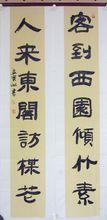 客到西園傾竹素
人来東閣訪楳花